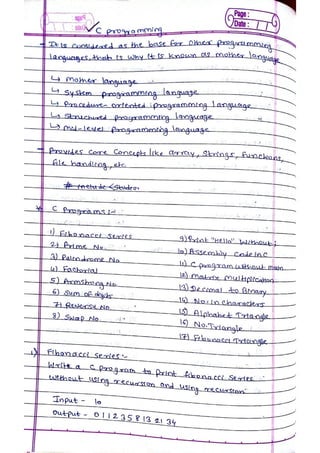 Page :
Date :
C programming
- It is considered as the base for other programming
languages, that is why it is known as mother language
↳ Mother language
↳ System programming language
↳ Procedure-oriented programming language
↳ Structured programming language
↳ mid-level programming language
- Provides core concepts like array, strings, functions,
file handling, etc.
# include <stdio.
* C Programs :-
1) Fibonacci Series
2) Prime No.
3) Palindrome No
4) Factorial
5) Armstrong No
6) Sum of digits
7) Reverse No.
8) Swap No.
9) Print "Hello" without ;
10) Assembly Code in C
11) C program without main
12) Matrix Multiplication
13) Decimal to Binary
14) No. in characters
15) Alphabet Triangle
16) No. Triangle
17) Fibonacci Triangle
1) Fibonacci Series :-
Write a C program to print fibonacci series
without using recursion and using recursion
Input - 10
Output - 0 1 1 2 3 5 8 13 21 34